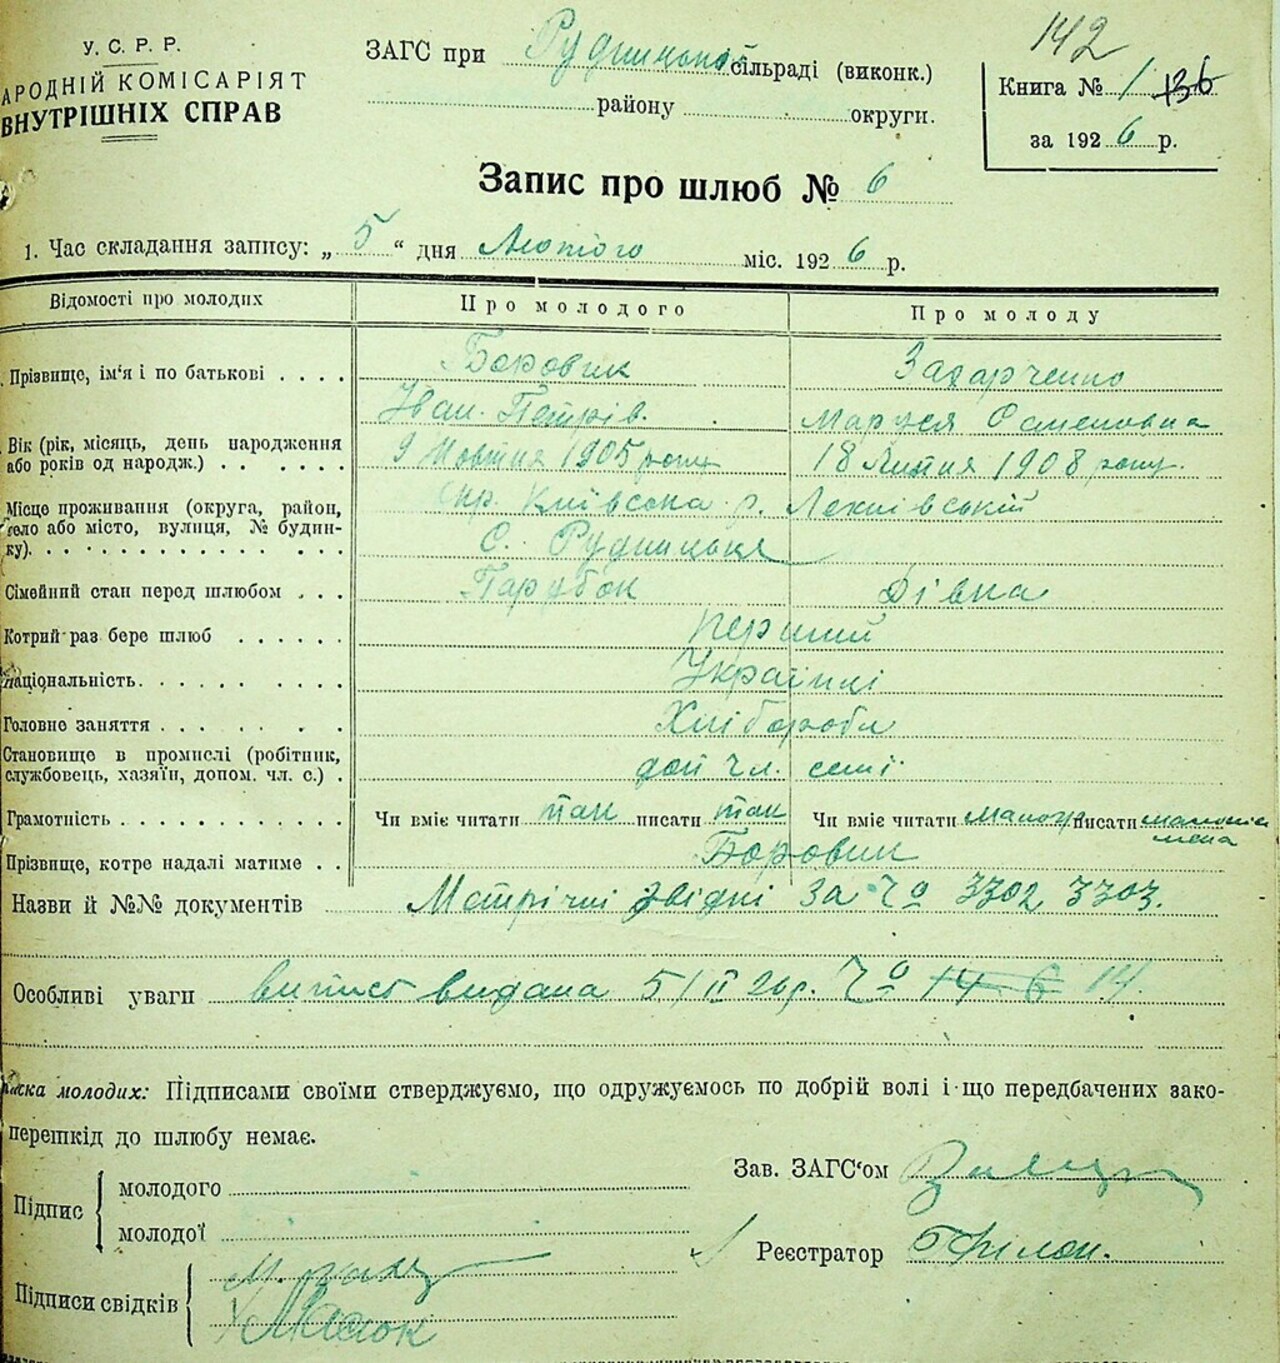 У. С. Р. Р.
АРОДНІЙ КОМІСАРІЯТ
ВНУТРІШНІХ СПРАВ
ЗАГС при Рудницькой сільраді (виконк.)
району округи.
142
Книга № 1 136
за 1926 р.
Запис про шлюб № 6
1. Час складання запису: „5“ дня Лютого міс. 1926 р.
Відомості про молодих Про молодого Про молоду
Прізвище, ім‘я і по батькові . . . . Боровик Захарченко
Іван. Петрів. Маруся Семеновна
Вік (рік, місяць, день народження 9 Жовтня 1905 року 18 Липня 1908 року.
або років од народж.) . . . . . .
Місце проживання (округа, район, Окр. Київська р.
село або місто, вулиця, № будин-
ку). . . . . . . . . . . . . . . С. Рудницьке
Сімейний стан перед шлюбом . . . Парубок Дівка
Котрий раз бере шлюб . . . . . . Перший
Національність. . . . . . . . . . Українці
Головне заняття . . . . . . . . Хлібороби
Становище в промислі (робітник,
службовець, хазяїн, допом. чл. с.) . доп чл. семї.
Грамотність . . . . . . . . . . . . Чи вміє читати так писати так Чи вміє читати писати
Прізвище, котре надалі матиме . . Боровик
Назви й №№ документів Метрічні звідні за Чо 3302 3303.
Особливі уваги випись видана 5/II 26р. Чо 14 6 14.
ска молодих: Підписами своїми стверджуємо, що одружуємось по добрій волі і що передбачених зако-
перешкід до шлюбу немає.
Підпис
молодого
молодої
Зав. ЗАГС‘ом
Реєстратор
Підписи свідків